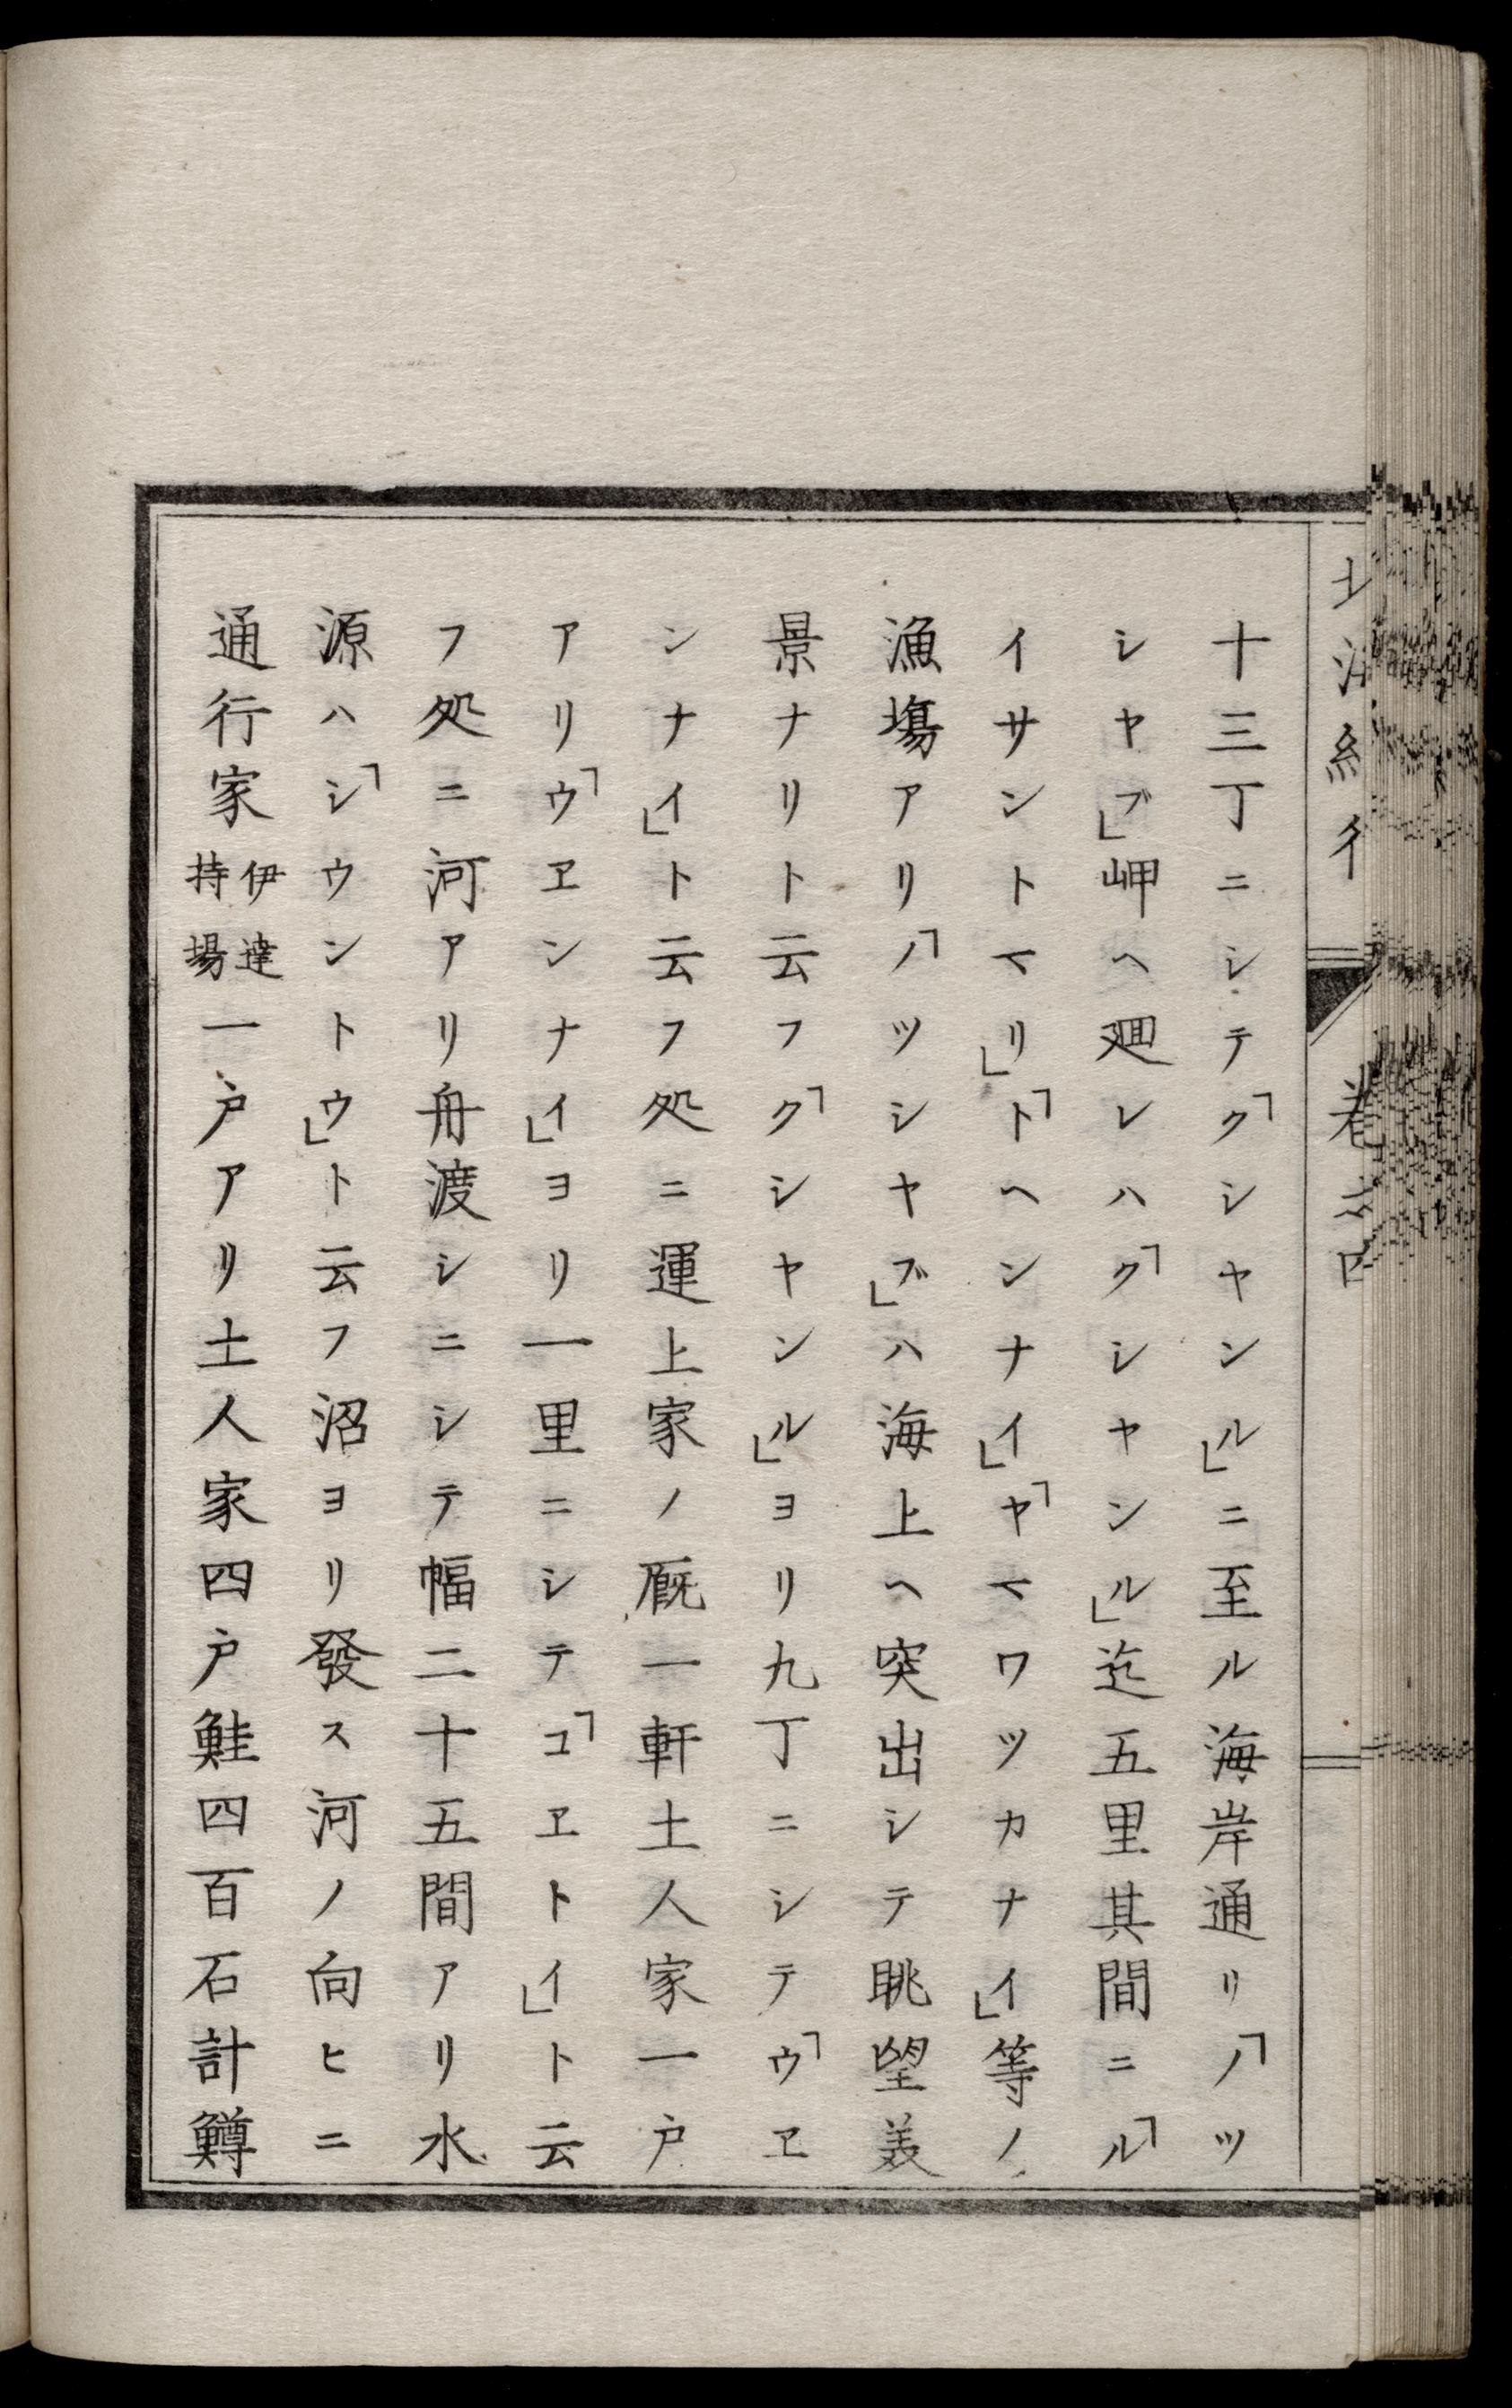 十三丁ニシテ「クシヤンル」ニ至ル海岸通リ「ノツ
シヤブ」岬ヘ廻レハ「クシヤンル」迄五里其間ニ「ル
イサントマリ」「トヘンナイ」「ヤマワツカナイ」等ノ
漁場アリ「ノツシヤブ」ハ海上ヘ突出シテ眺望美
景ナリト云フ「クシヤンル」ヨリ九丁ニシテ「ウヱ
ンナイ」ト云フ処ニ運上家ノ厩一軒土人家一戸
アリ「ウヱンナイ」ヨリ一里ニシテ「コヱトイ」ト云
フ処ニ河アリ舟渡シニシテ幅二十五間アリ水
源ハ「シウントウ」ト云フ沼ヨリ發ス河ノ向ヒニ
通行家伊達持場一戸アリ土人家四戸鮭四百石計鱒